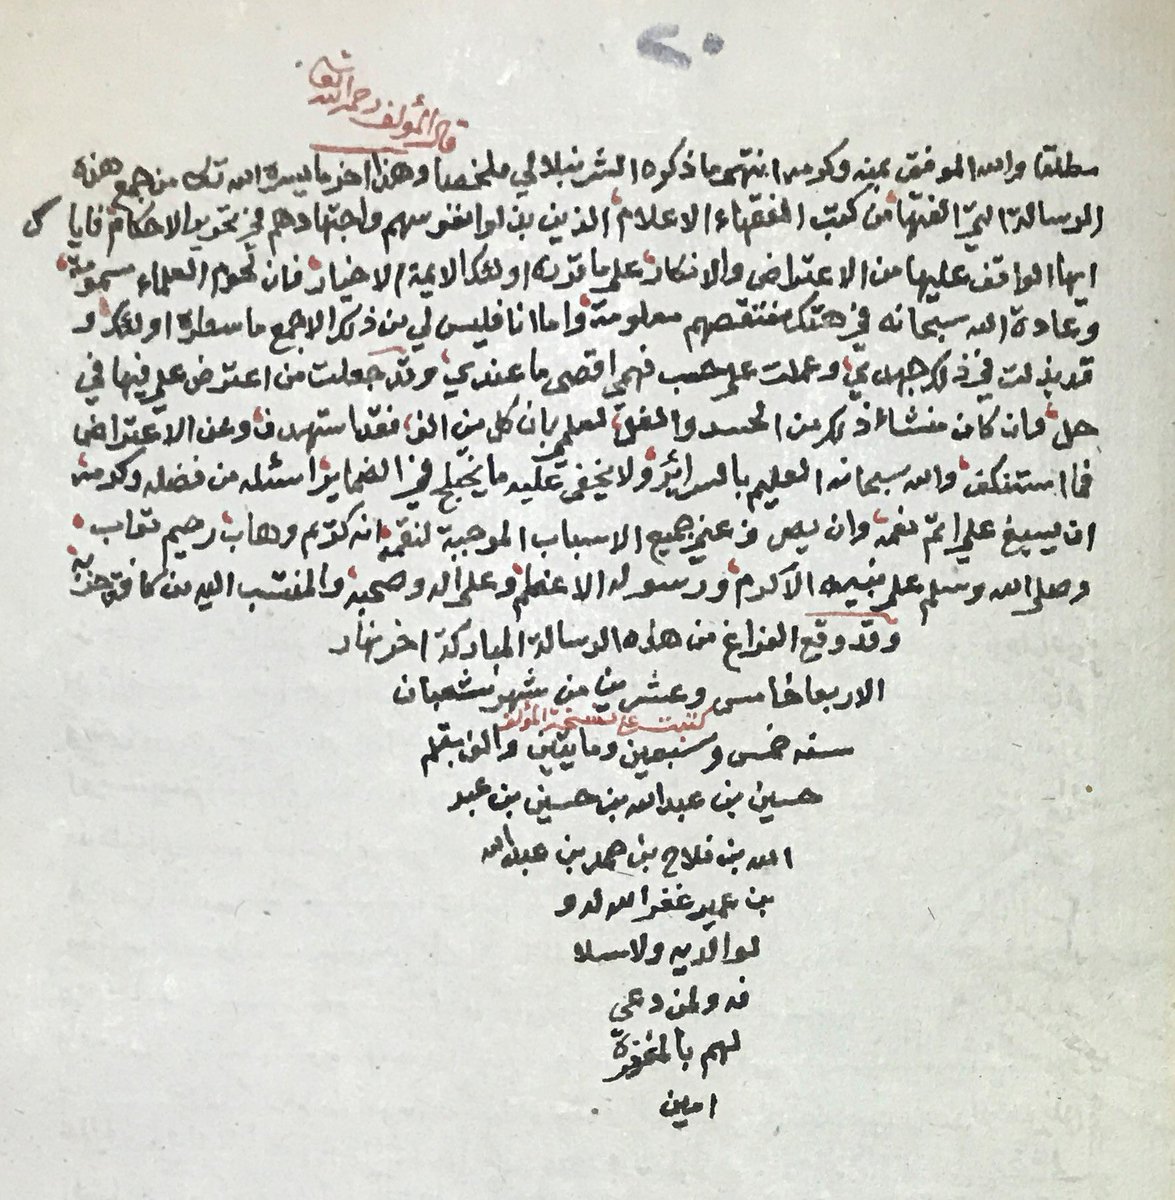 ٢٠
قال المؤلف رحمه الله تعالى
مطلقا والله الموفق بمنه وكرمه انتهى ما ذكره الشرنبلالي ملخصا وهذا اخر ما يسره الله تعالى من جمع هذه
الرسالة التي الفتها من كتب الفقهاء الاعلام الذين بذلوا نفوسهم واجتهادهم في تحرير الاحكام فايا ك
ايها الواقف عليها من الاعتراض والانكار على ما قرره اولئك الايمة الاخيار فان لحوم العلماء مسمومة
وعادة الله سبحانه في هتك منتقصهم معلومة واما انا فليس لي من ذلك الا جمع ما سطره اولئك و
قد بذلت في ذلك جهدي وعملت على حسب فهمي اقصى ما عندي وقد جعلت من اعترض علي فيها في
حل فان كان منشاء ذلك من الحسد والغل لعلمي بان كل من الف فقد استهدف وعن الاعتراض
فما استنكف والله سبحانه العليم بالسرائر ولا يخفى عليه ما يختلج في الضماير اسئله من فضله وكرمه
ان يسبغ علي اتم نعمه وان يصرف عني جميع الاسباب الموجبة لنقمه انه كريم وهاب رحيم تواب
وصلى الله وسلم على نبيه الاكرم ورسوله الاعظم وعلى اله وصحبه والمنتسب اليه من كافة حزبه
وقد وقع الفراغ من هذه الرسالة المباركة اخر نهار
الاربعا خامس وعشرين من شهر شعبان
كتبت على نسخة المؤلف
سنه خمس وسبعين ومايتين والف بقلم
حسين بن عبدالله بن حسين بن عبد
الله بن فلاح بن حمد بن عبدالله
بن عمير غفر الله له و
لوالديه ولاسلا
فه ولمن دعى
لهم بالمغفرة
امين